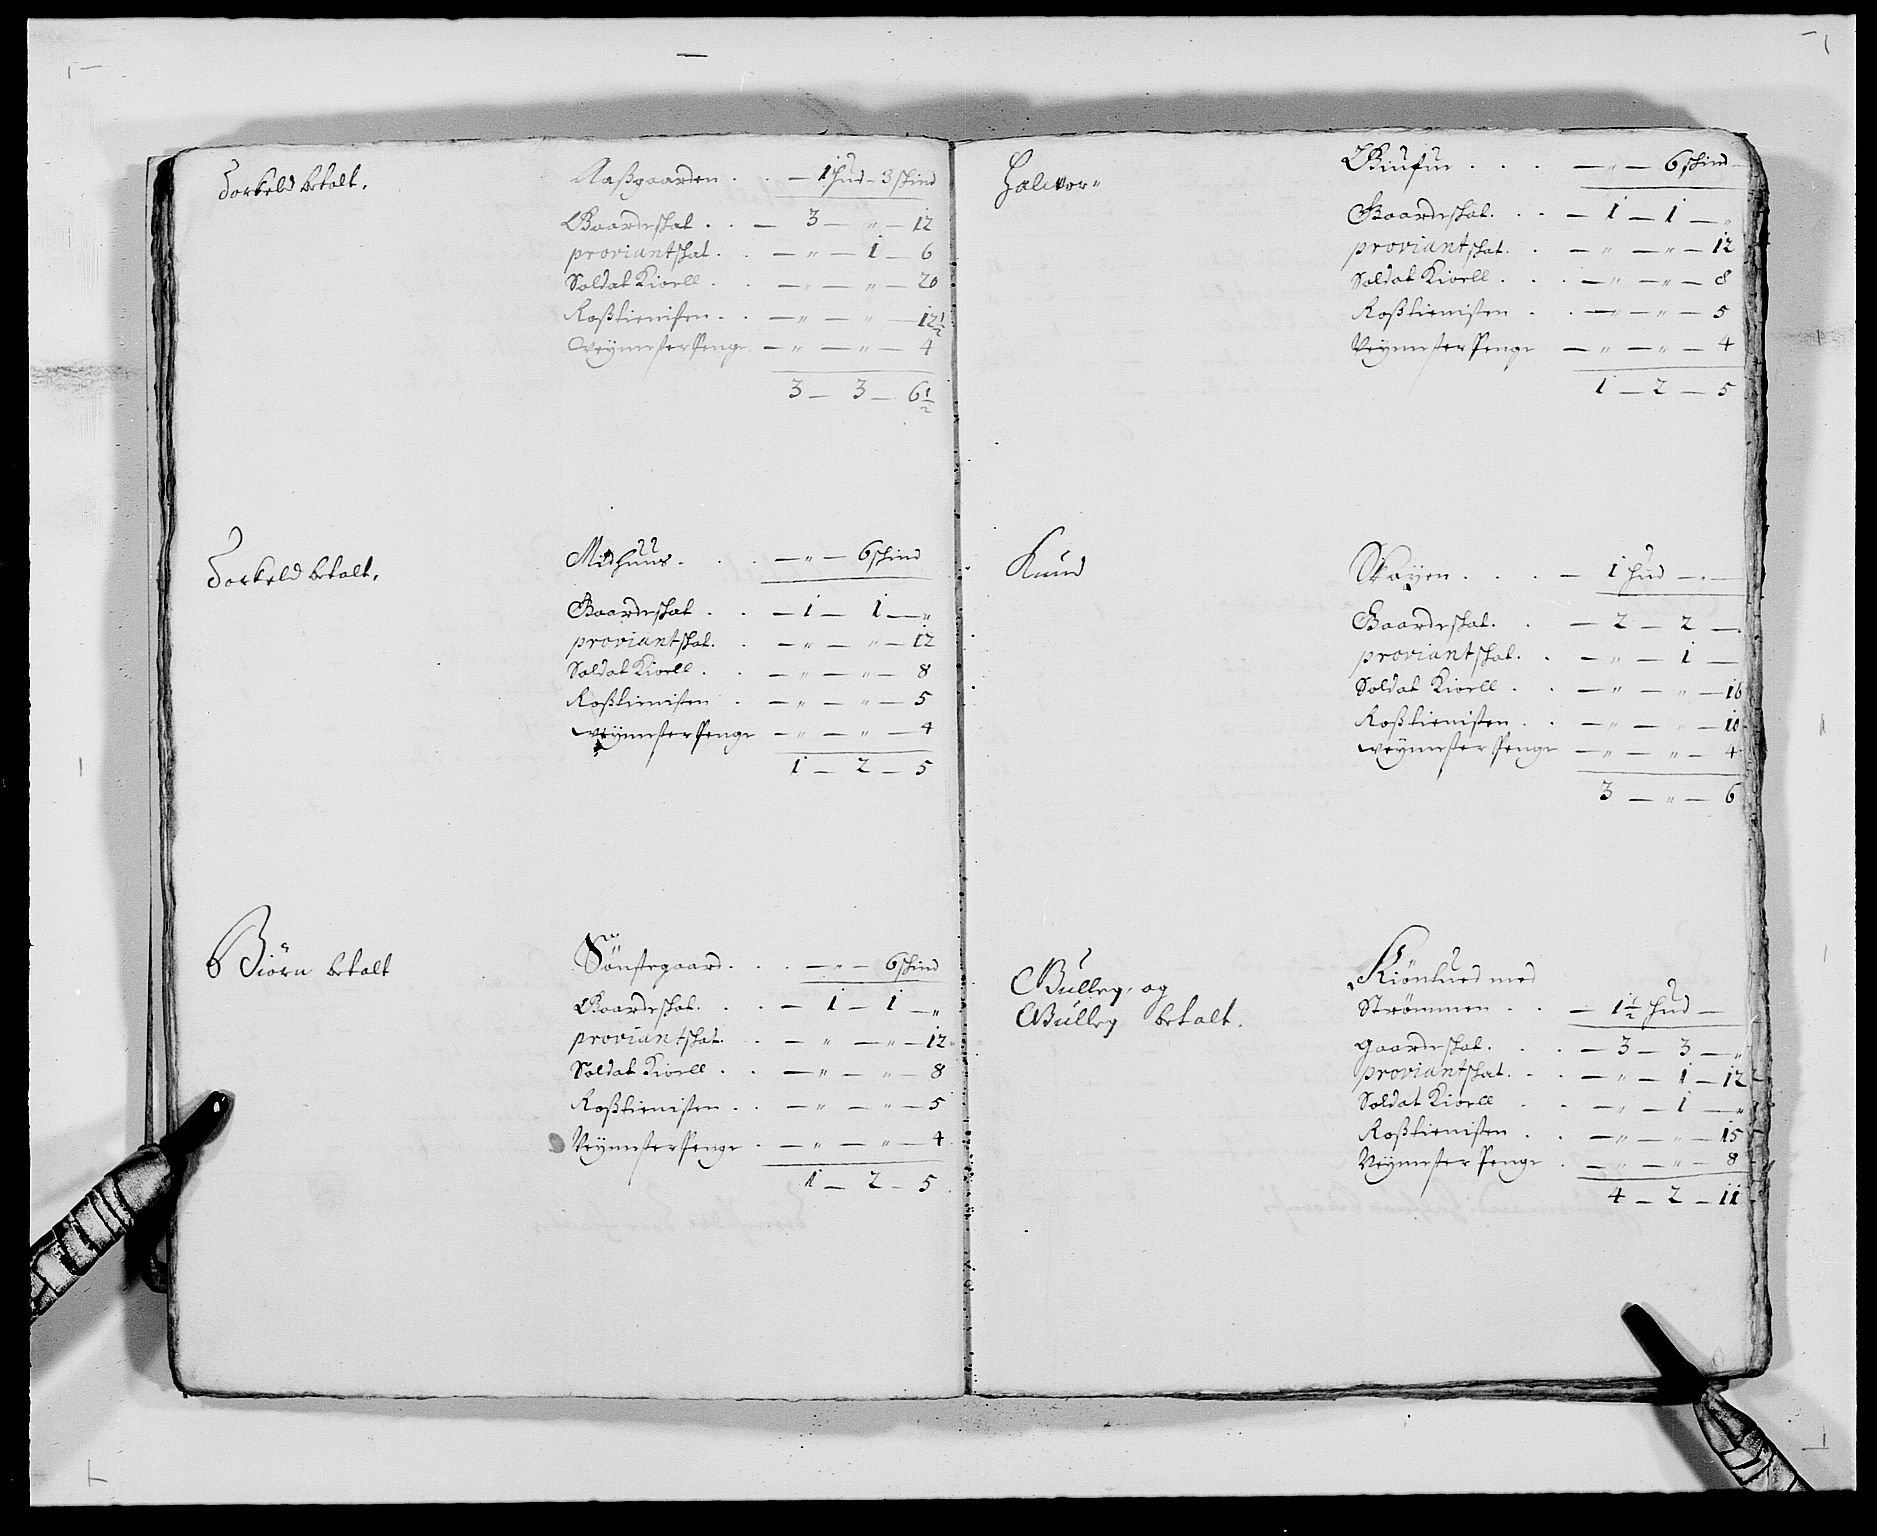 Torkeld betalt.
Aaßgaarden . . — 1 hud — 3 skind
Gaardeskat . . — 3 — „ — 12
proviantskat . . — „ — 1 — 6
Soldat Kioell . . — „ — „ — 20
Roßtienisten . . — „ — „ — 12½
Weymester Penge — „ — „ — 4
3 — 3 — 6½
Torkeld betalt.
Midhuus . . . — „ — 6 skind
Gaardeskat . . — 1 — 1 — „
proviantskat . . — „ — „ — 12
Soldat Kioell . . — „ — „ — 8
Roßtienisten . — „ — „ — 5
Weymester Penge — „ — „ — 4
1 — 2 — 5
Biörn betalt
Sönstegaard . . . — „ — 6 skind
Gaardeskat . . . — 1 — 1 — „
proviantskat . . — „ — „ — 12
Soldat Kioell . . — „ — „ — 8
Roßtienisten . . — „ — „ — 5
Veymester Penge . — „ — „ — 4
1 — 2 — 5
Halvor
. . . . — „ — 6 skind
Gaardeskat . . . — 1 — 1 — „
proviantskat . . — „ — „ — 12
Soldat Kioell . . . — „ — „ — 8
Roßtienisten . . — „ — „ — 5
Veymester Penge — „ — „ — 4
1 — 2 — 5
Knud
Skoyen . . . . — 1 hud — „ —
Gaardeskat . . — 2 — 2 —
proviantskat . . — „ — 1 —
Soldat Kioell . . — „ — „ — 16
Roßtienisten . . — „ — „ — 10
Weymester Penge — „ — „ — 4
3 — „ — 6
Gulleg og
Gulleg betalt.
Kiöntued med
Strömmen . . — 1½ hud —
gaardeskat . . . — 3 — 3 — „
proviantskat . . . — „ — 1 — 12
Soldat Kioell . . — „ — 1 — „
Roßtienisten . . — „ — „ — 15
Veymester Penge . — „ — „ — 8
4 — 2 — 11